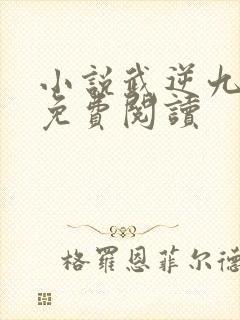 小說武逆九
免費閱讀
格羅恩菲尔德